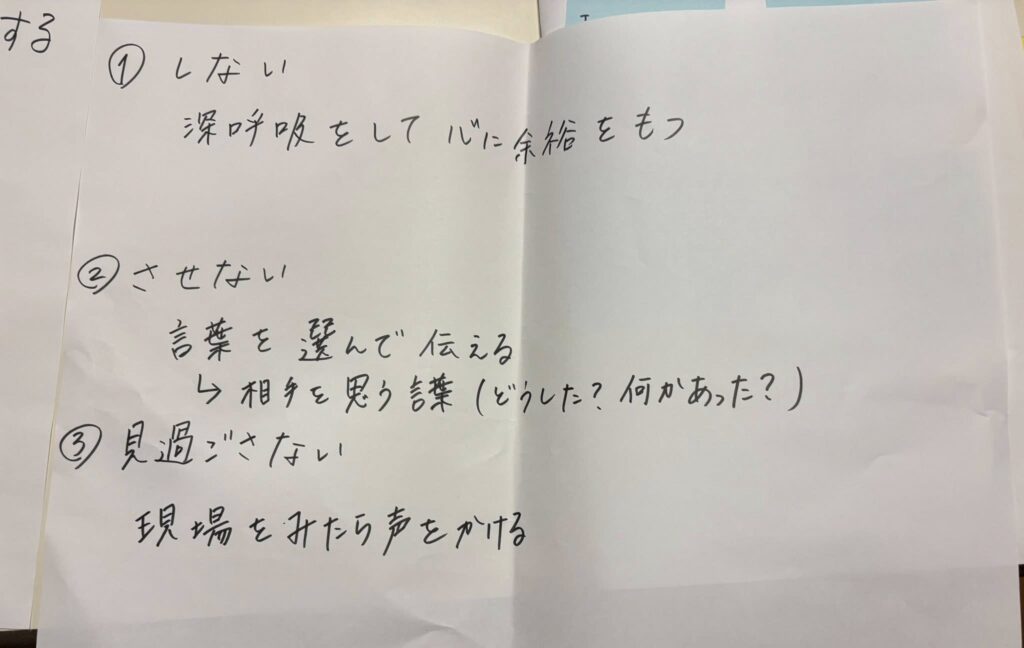 する
① しない
深呼吸をして 心に余裕をもつ
② させない
言葉を選んで伝える
↳ 相手を思う言葉 (どうした? 何かあった?)
③ 見過ごさない
現場をみたら声をかける